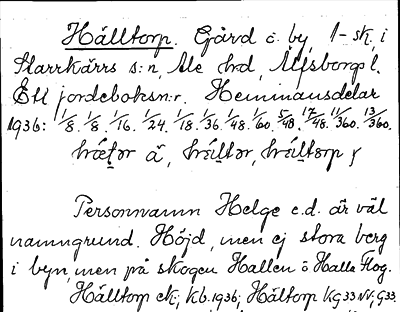 Hälltorp. Gård o. by, 1-sk, i
Starrkärrs s:n, Ale hrd, Älfsborgs l.
Ett jordeboksn:r. Hemmansdelar
1936: 1/8. 1/8. 1/16. 1/24. 1/18. 1/36. 1/48. 1/60. 5/48. 17/48. 11/360. 13/360.
Personnamn Helge e.d. är väl
namngrund. Höjd, men ej stora berg
i byn, men på skogen Hallen o Halla Flog.
Hälltorp ek; kb. 1936; Hältorp KG 33 NV; G33.